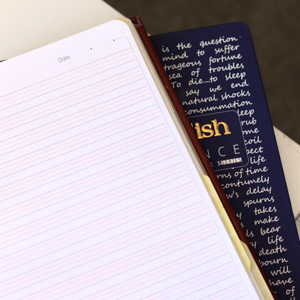 Date
is the question.
mind to suffer
trageous fortune
sea of troubles
To die...to sleep
say we end
natural shocks
consummation
sleep
rub
ish
come
coil
NCE
pect
SERIES
life
of time
contumely
w's delay
spurns
takes
make
ls bear
life
death
bourn
will
have